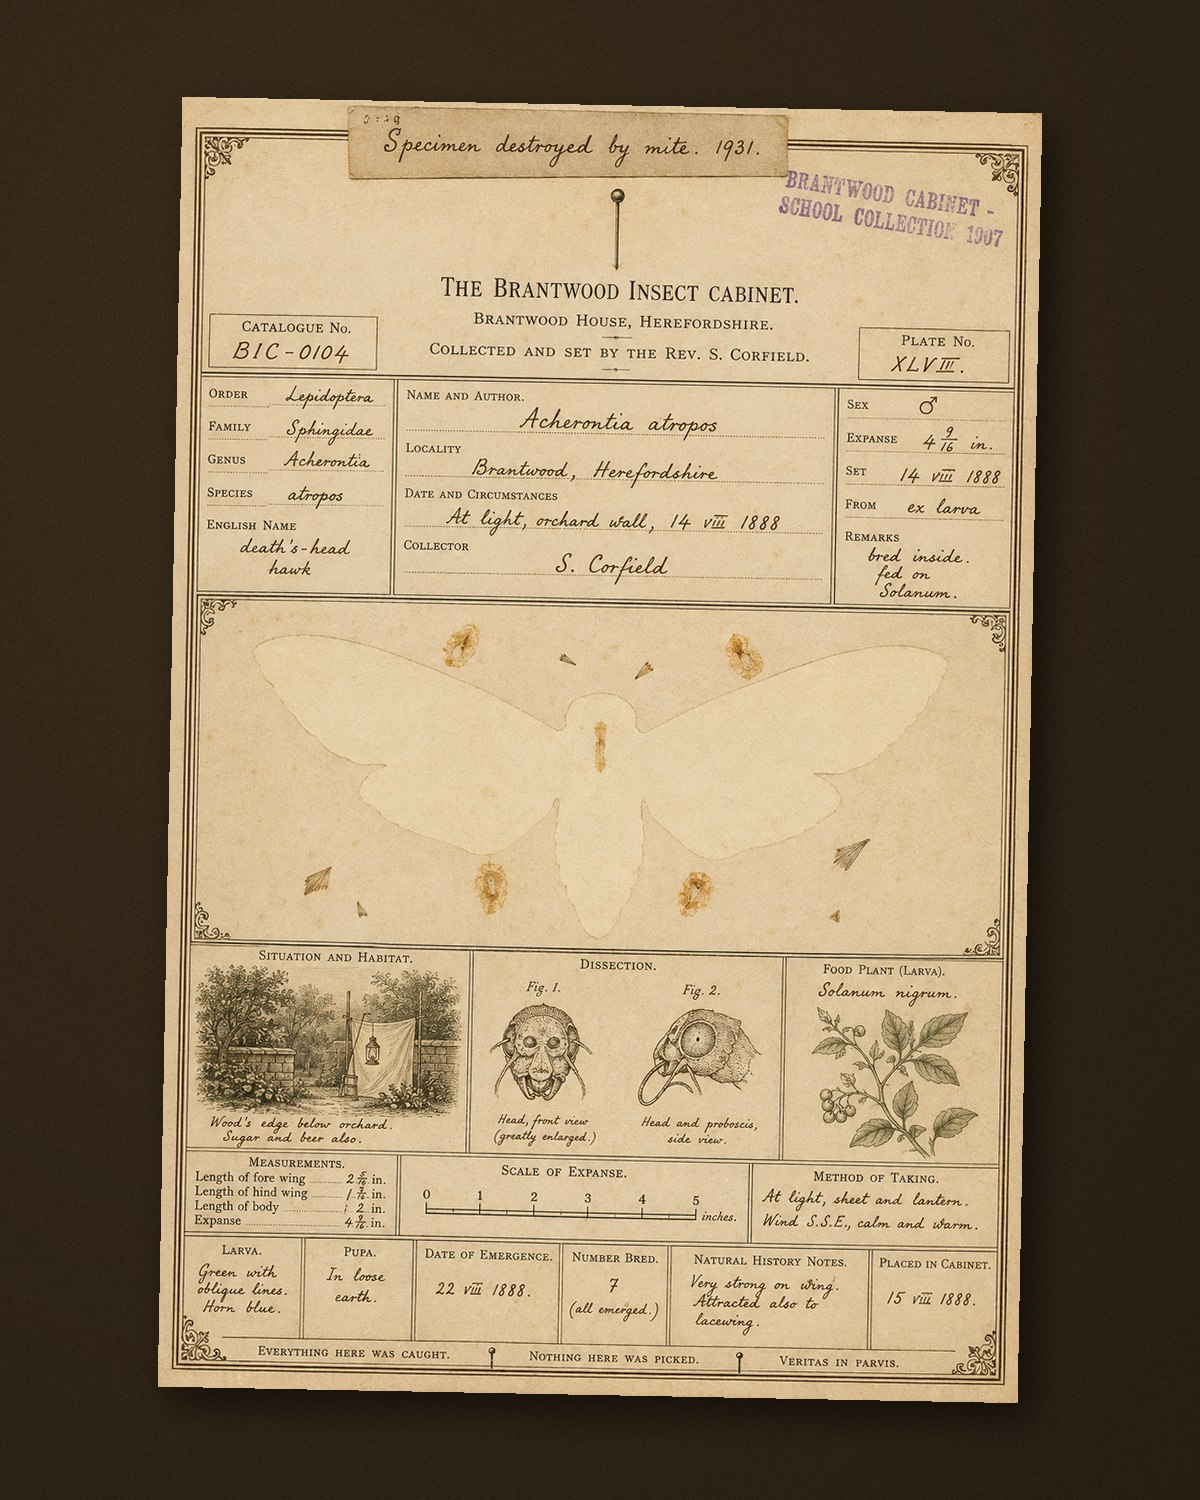 Specimen destroyed by mite. 1931.
BRANTWOOD CABINET -
SCHOOL COLLECTION 1907
THE BRANTWOOD INSECT CABINET.
BRANTWOOD HOUSE, HEREFORDSHIRE.
COLLECTED AND SET BY THE REV. S. CORFIELD.
CATALOGUE No.
BIC-0104
PLATE No.
XLVIII.
ORDER Lepidoptera
FAMILY Sphingidae
GENUS Acherontia
SPECIES atropos
ENGLISH NAME
death's-head
hawk
NAME AND AUTHOR.
Acherontia atropos
LOCALITY
Brantwood, Herefordshire
DATE AND CIRCUMSTANCES
At light, orchard wall, 14 viii 1888
COLLECTOR
S. Corfield
SEX ♂
EXPANSE 4 9/16 in.
SET 14 viii 1888
FROM ex larva
REMARKS
bred inside.
fed on
Solanum.
SITUATION AND HABITAT.
Wood's edge below orchard.
Sugar and beer also.
DISSECTION.
Fig. 1.
Fig. 2.
Head, front view
(greatly enlarged.)
Head and proboscis,
side view.
FOOD PLANT (LARVA).
Solanum nigrum.
MEASUREMENTS.
Length of fore wing 2 5/16 in.
Length of hind wing 1 7/16 in.
Length of body 2 in.
Expanse 4 9/16 in.
SCALE OF EXPANSE.
0 1 2 3 4 5
inches.
METHOD OF TAKING.
At light, sheet and lantern.
Wind S.S.E., calm and warm.
LARVA.
Green with
oblique lines.
Horn blue.
PUPA.
In loose
earth.
DATE OF EMERGENCE.
22 viii 1888.
NUMBER BRED.
7
(all emerged.)
NATURAL HISTORY NOTES.
Very strong on wing.
Attracted also to
lacewing.
PLACED IN CABINET.
15 viii 1888.
EVERYTHING HERE WAS CAUGHT. NOTHING HERE WAS PICKED. VERITAS IN PARVIS.